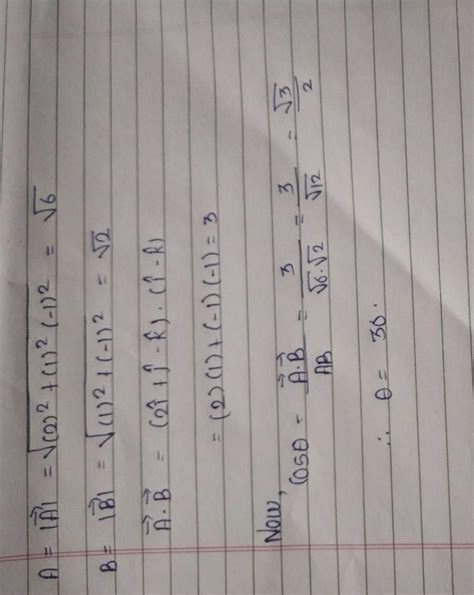 A = |A⃗| = √(2)² + (1)² (-1)² = √6
B = |B⃗| = √(1)² + (-1)² = √2
A⃗.B⃗ = (2î + ĵ - k̂) . (î - k̂)
= (2) (1) + (-1) (-1) = 3
Now,
cosθ = A⃗.B⃗ / AB = 3 / √6.√2 = 3 / √12 = √3 / 2
∴ θ = 30°